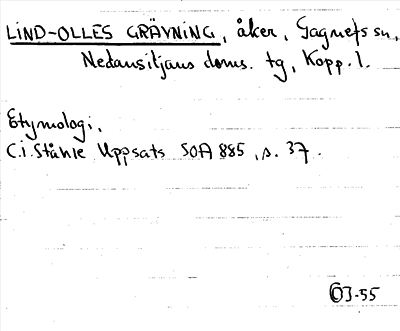 LIND-OLLES GRÄVNING, åker, Gagnefs sn,
Nedansiljans doms. tg, Kopp. l.
Etymologi.
C.i. Ståhle Uppsats SOA 885, s. 37.
ÖJ-55